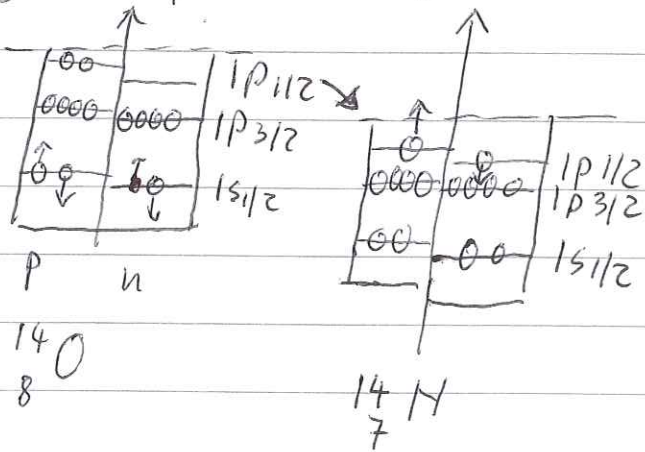 1P1/2
1P3/2
1S1/2
P n
14
8 O
1P1/2
1P3/2
1S1/2
14
7 N